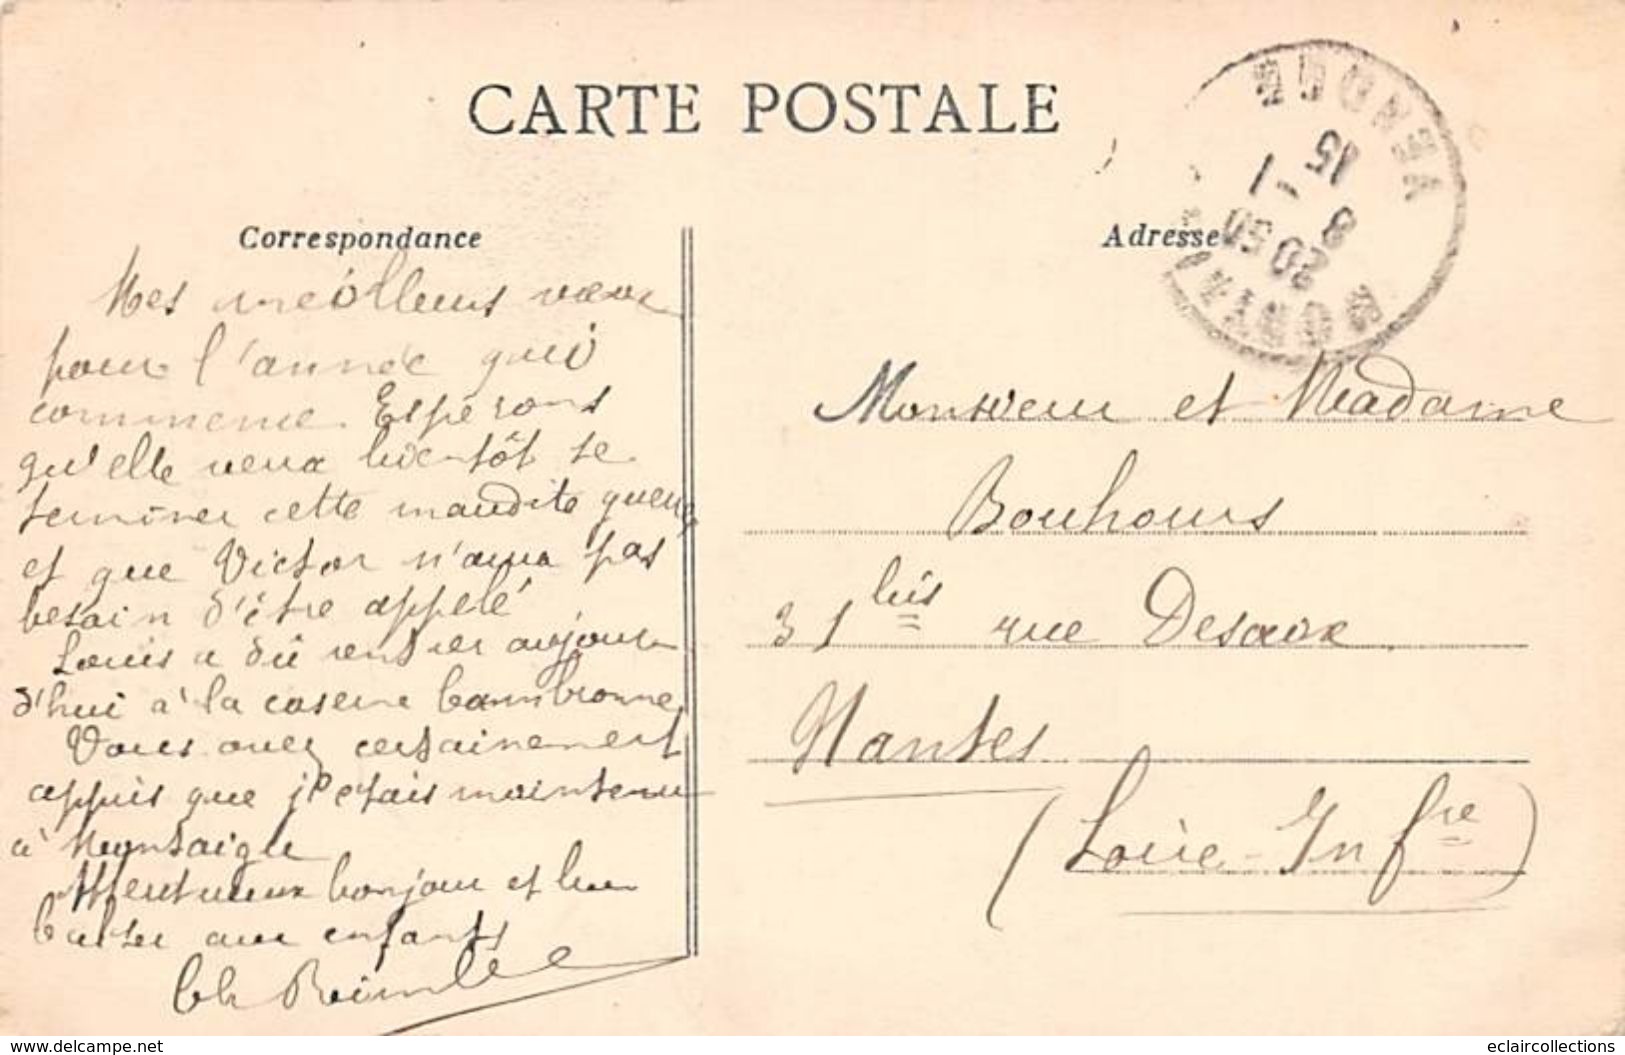 CARTE POSTALE
Correspondance
Mes meilleurs vœux
pour l'année qui
commence. Espérons
qu'elle verra bientôt se
terminer cette maudite guerre
et que Victor n'aura pas
besoin d'être appelé
Louis a dû rentrer aujour
d'hui à la caserne Cambronne,
Vous avez certainement
appris que j'étais maintenu
à Montaigu
Affectueux bonjour et bon
baiser aux enfants
Ch
Adresse
VENDÉE
15
8 -1
MONTAI
Monsieur et Madame
Bouhours
31 bis rue Desaix
Nantes
(Loire-Infre)
www.delcampe.net
eclaircollections